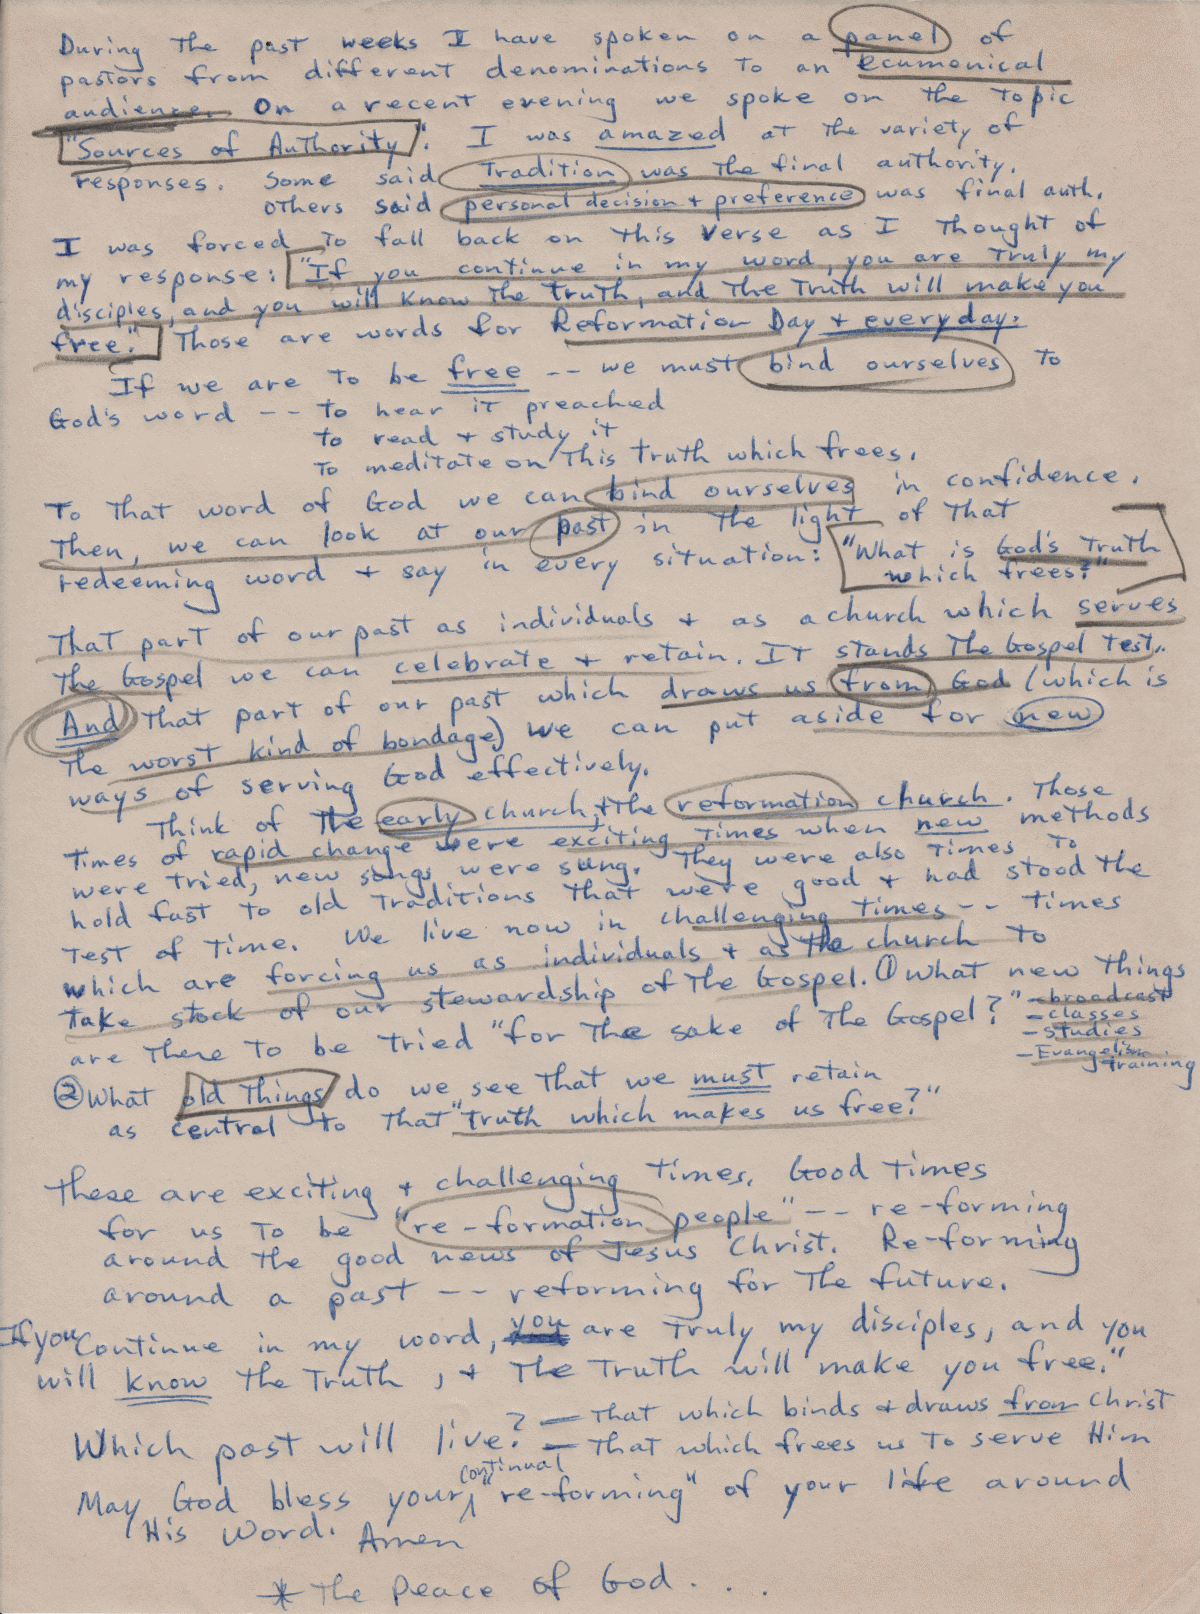 During the past weeks I have spoken on a panel of
pastors from different denominations to an ecumenical
audience. On a recent evening we spoke on the topic
"Sources of Authority". I was amazed at the variety of
responses. Some said Tradition was the final authority.
others said personal decision + preference was final auth.
I was forced to fall back on this verse as I thought of
my response: "If you continue in my word, you are truly my
disciples, and you will know the truth, and the truth will make you
free." Those are words for Reformation Day + everyday.
If we are to be free -- we must bind ourselves to
God's word -- to hear it preached
to read + study it
to meditate on this truth which frees.
To that word of God we can bind ourselves in confidence.
Then, we can look at our past in the light of that
redeeming word + say in every situation: "What is God's Truth
which frees?"
That part of our past as individuals + as a church which serves
the Gospel we can celebrate + retain. It stands the Gospel test..
And that part of our past which draws us from God (which is
the worst kind of bondage) we can put aside for new
ways of serving God effectively.
Think of the early church + the reformation church. Those
times of rapid change were exciting times when new methods
were tried, new songs were sung. They were also times to
hold fast to old traditions that were good + had stood the
test of time. We live now in challenging times -- times
which are forcing us as individuals + as the church to
take stock of our stewardship of the Gospel. ① What new things
are there to be tried "for the sake of the Gospel?" - broadcast
- classes
- studies
- Evangelism
training
② What old things do we see that we must retain
as central to that "truth which makes us free?"
These are exciting + challenging times. Good times
for us to be "re-formation people" -- re-forming
around the good news of Jesus Christ. Re-forming
around a past -- reforming for the future.
If you continue in my word, you are truly my disciples, and you
will know the truth, + the truth will make you free."
Which past will live? - That which binds + draws from Christ
- That which frees us to serve Him
May God bless your continual "re-forming" of your life around
His Word. Amen
* The Peace of God . . .